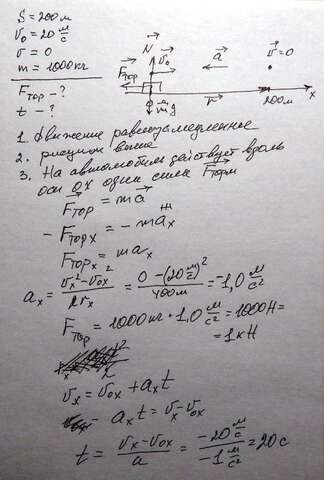 S = 200 м
v₀ = 20 м/с
v = 0
m = 1000 кг
Fтор - ?
t - ?
N v₀ a v = 0
Fтор
mg r 200 м x
1. Движение равнозамедленное
2. рисунок выше
3. На автомобиль действует вдоль
оси ox одна сила Fторм
Fтор = ma
- Fтор x = - max
Fтор x = max
ax = (vx² - v₀x²)/(2rx) = (0 - (20 м/с)²)/(400 м) = -1,0 м/с²
Fтор = 1000 кг · 1,0 м/с² = 1000 Н =
= 1 кН
vx = v₀x + axt
axt = vx - v₀x
t = (vx - v₀x)/a = (-20 м/с)/(-1 м/с²) = 20 с